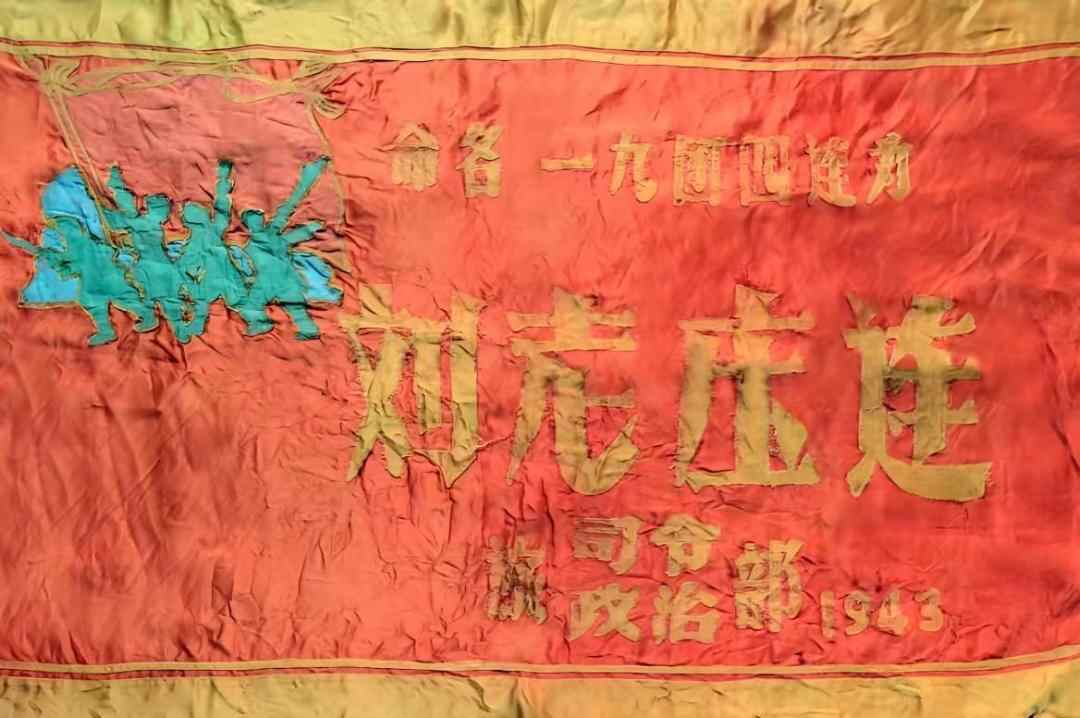 命名 一九团四连为
刘老庄连
司令
政治部 1943